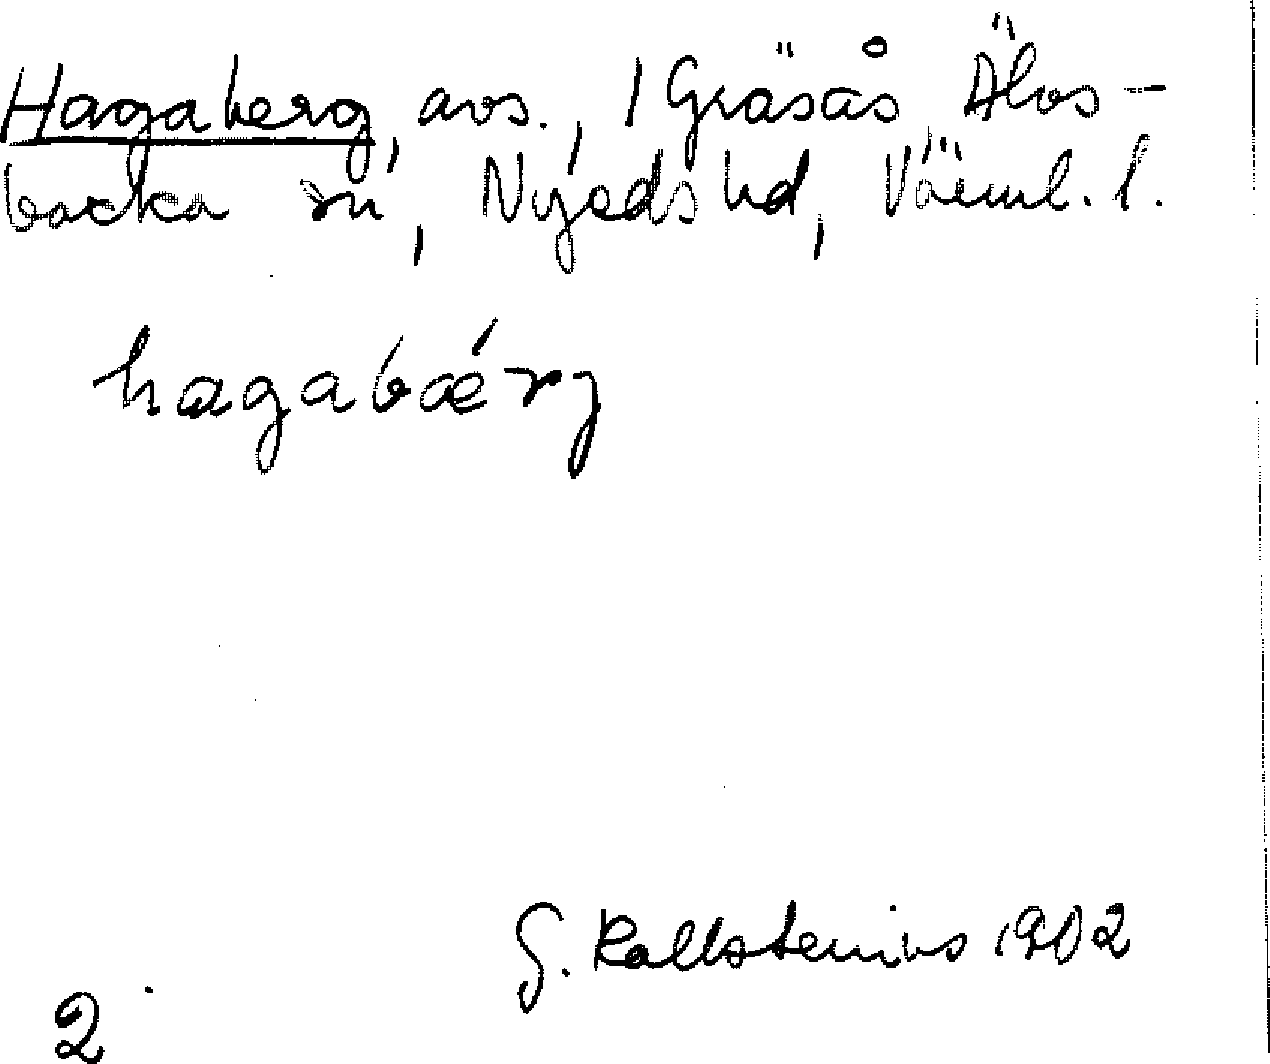 Hagaberg, avs., 1 Gräsås, Älvs-
backa sn, Nyeds hd, Värml. l.
hagabǽrj
G. Kallstenius 1902
2